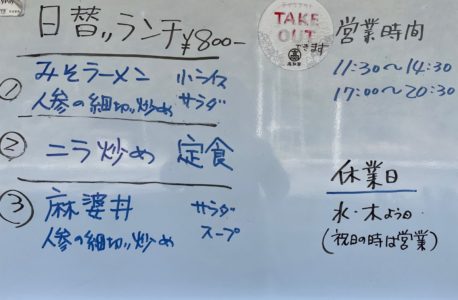 日替りランチ ¥800-
① みそラーメン 小ライス
人参の細切り炒め サラダ
② ニラ炒め 定食
③ 麻婆丼 サラダ
人参の細切り炒め スープ
テイクアウト
TAKE
OUT
できます
営業時間
11:30～14:30
17:00～20:30
休業日
水・木よう日
(祝日の時は営業)